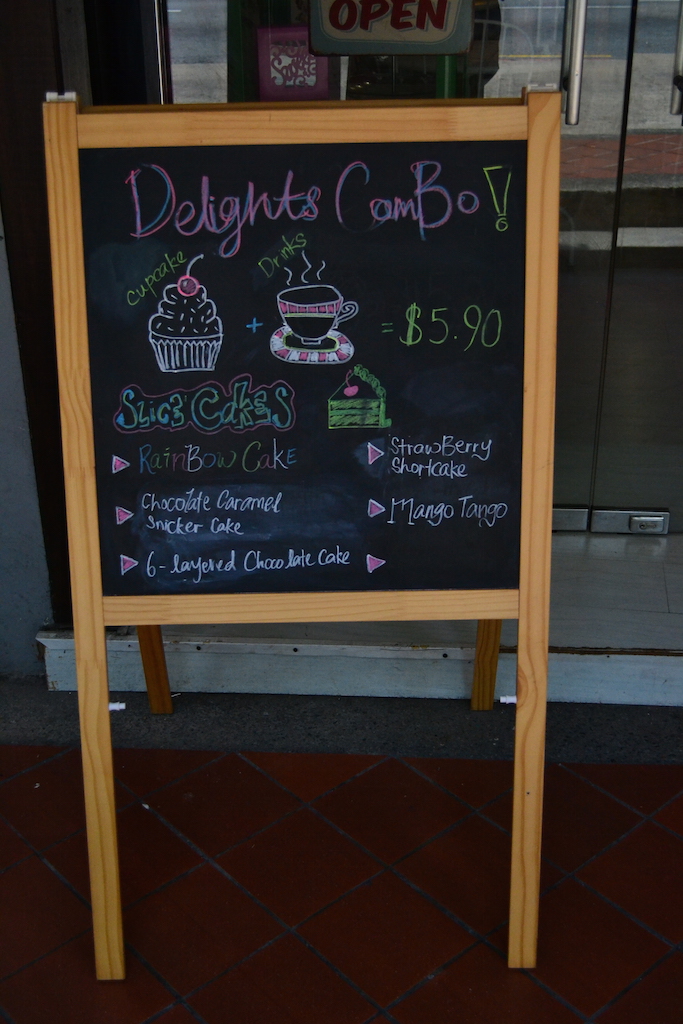 OPEN
Delights ComBo!
cupcake
Drinks
+
= $5.90
SLICE CAKES
RainBow CaKE
StrawBerry
Shortcake
Chocolate Caramel
Snicker cake
Mango Tango
6-layered Chocolate Cake